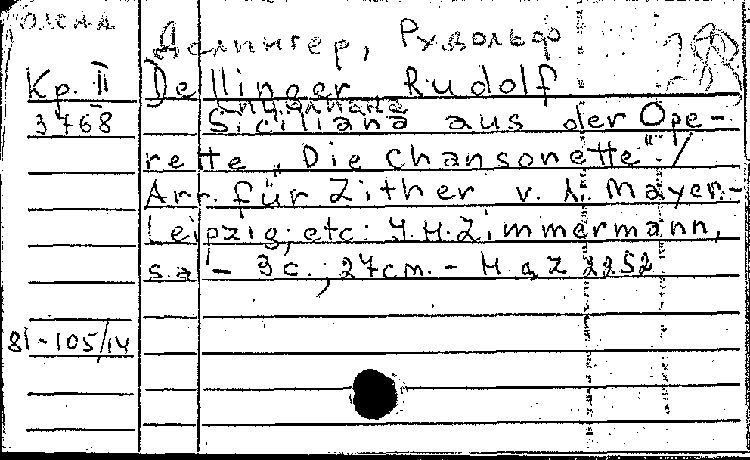 Делингер, Рудольф
Кр. II Dellinger Rudolf
Сицилиана
3768 Siciliana aus der Ope-
rette „Die Chansonette“ /
Arr. für Zither v. A. Mayer.-
Leipzig; etc: J. H. Zimmermann,
s.a - 3 c.; 27 cm. - H a Z 2252
81-105/14